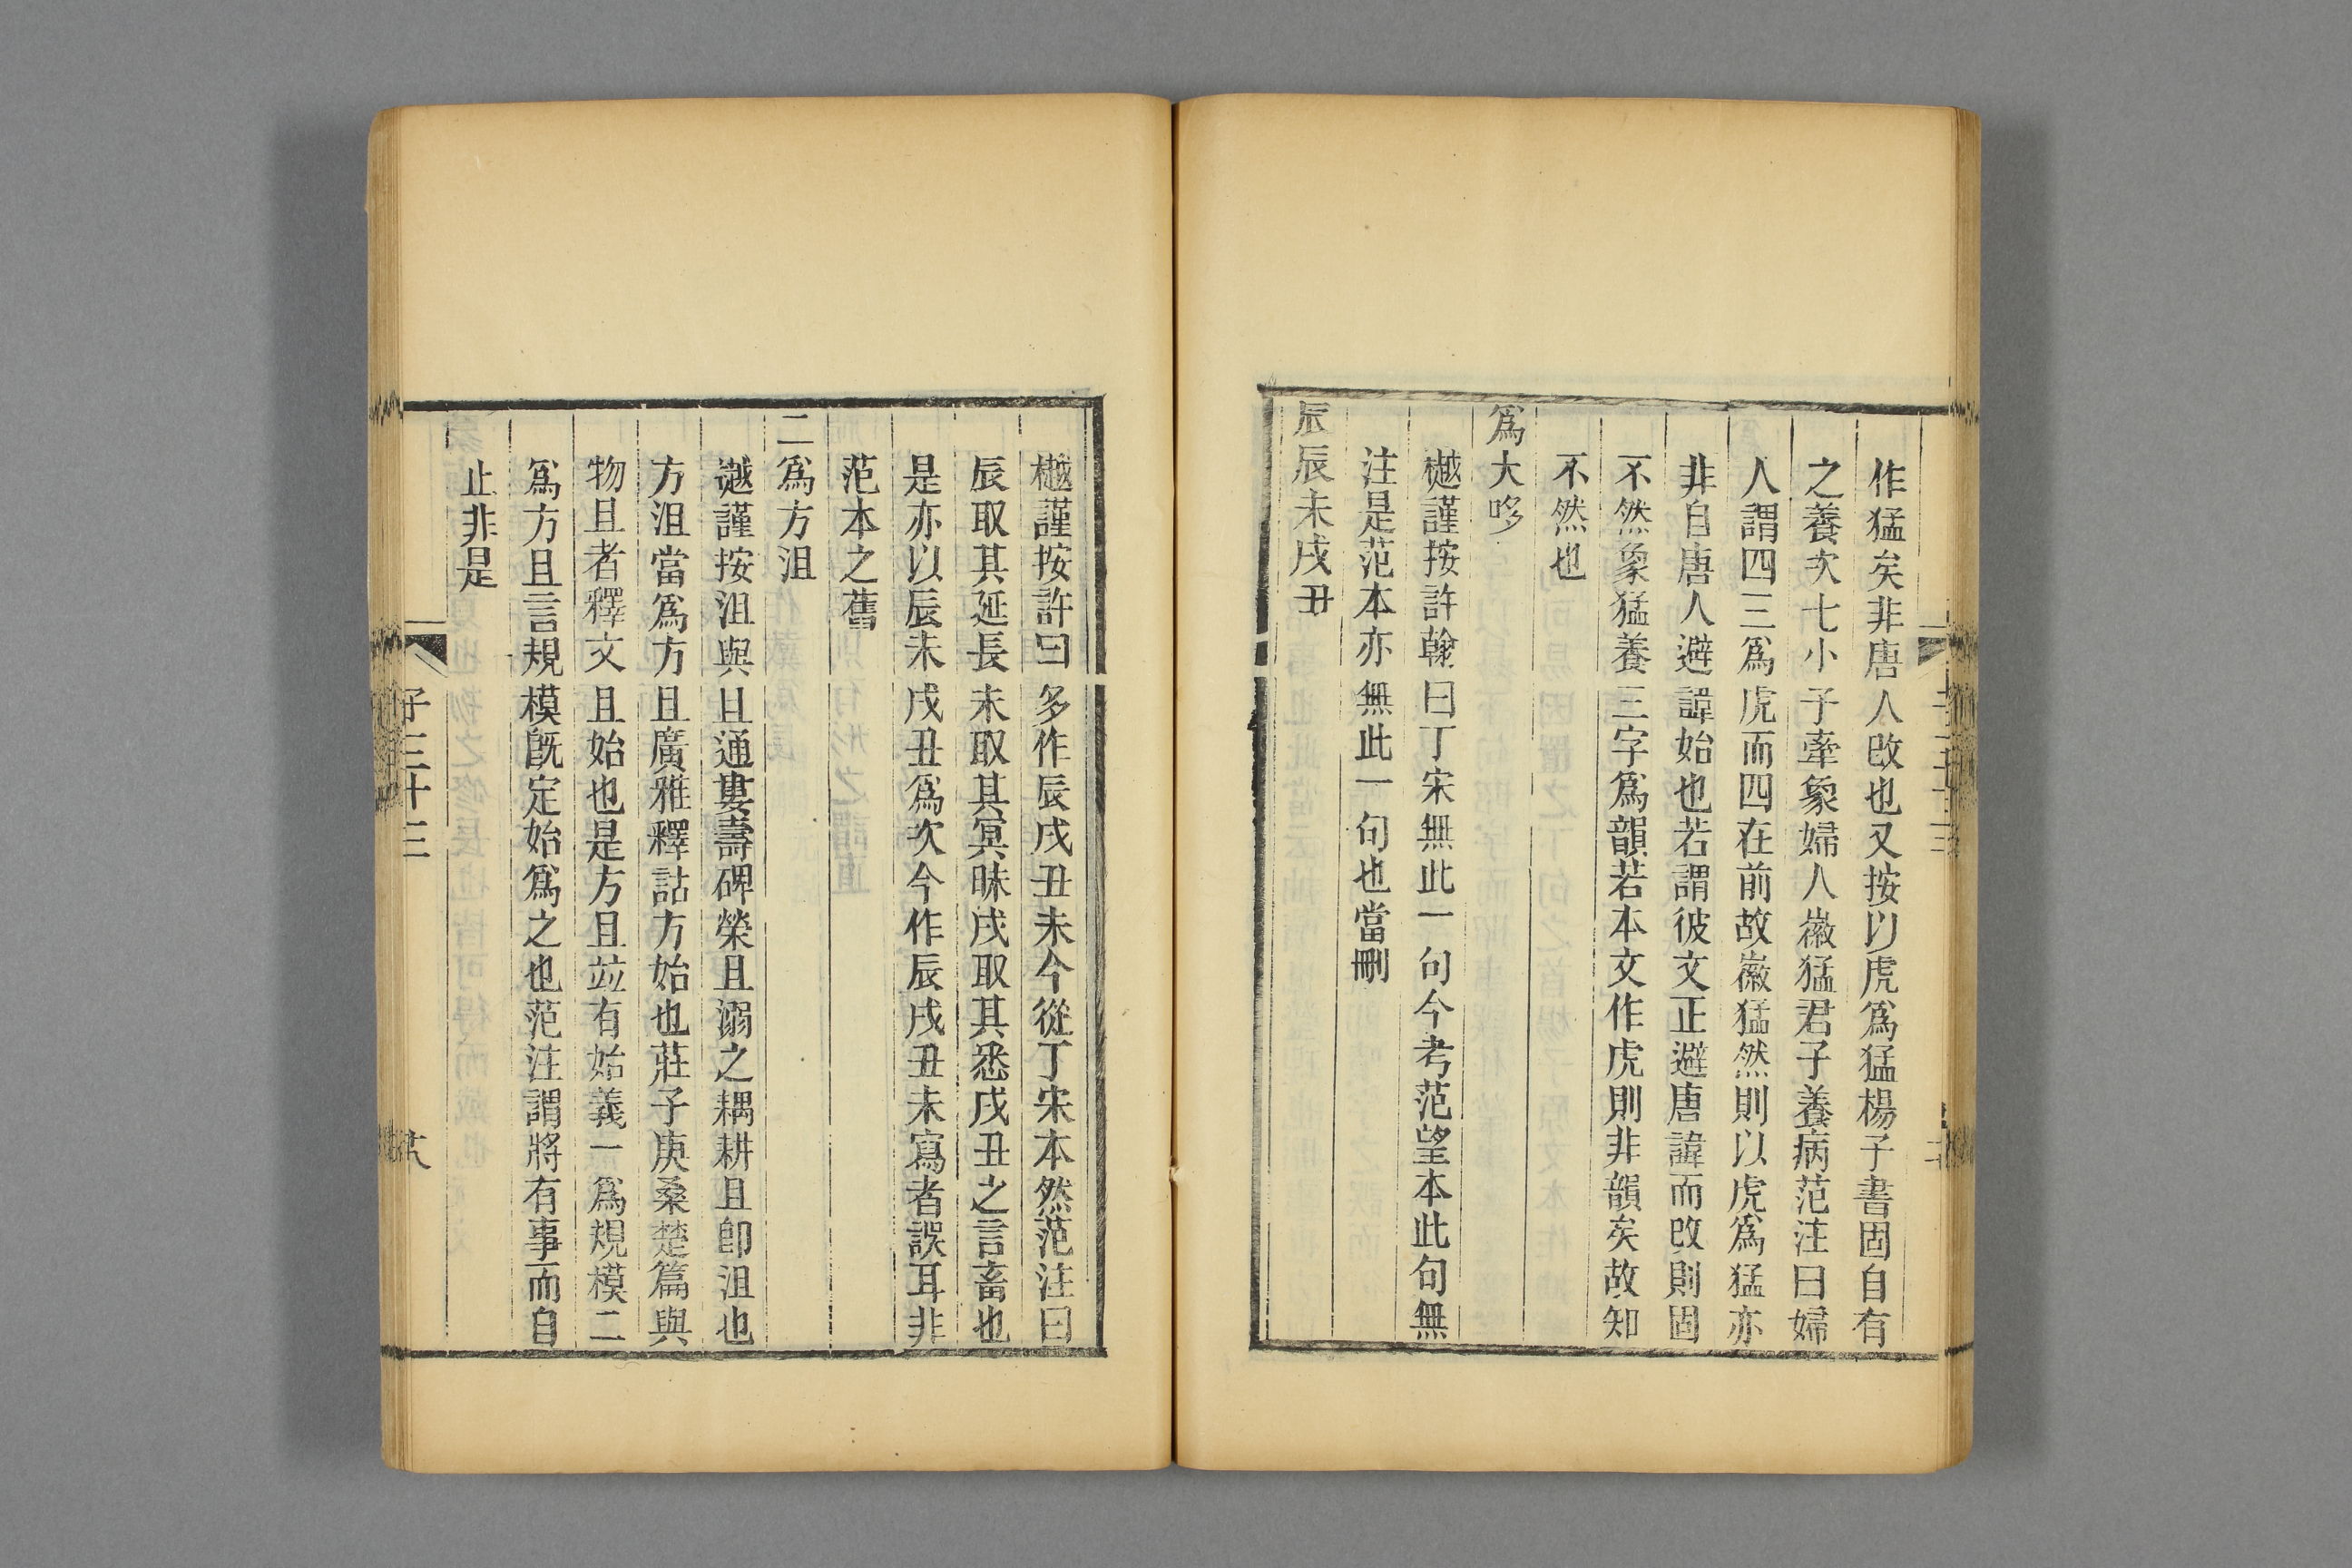 作猛矣非唐人改也又按以虎爲猛楊子書固自有
之養次七小子牽象婦人徽猛君子養病范注曰婦
人謂四三爲虎而四在前故徽猛然則以虎爲猛亦
非自唐人避諱始也若謂彼文正避唐諱而改則固
不然象猛養三字爲韻若本文作虎則非韻矣故知
不然也
爲大哆
樾謹按許翰曰丁宋無此一句今考范望本此句無
注是范本亦無此一句也當刪
辰辰未戌丑
樾謹按許曰多作辰戌丑未今從丁宋本然范注曰
辰取其延長未取其冥昧戌取其悉戌丑之言畜也
是亦以辰未戌丑爲次今作辰戌丑未寫者誤耳非
范本之舊
二爲方沮
樾謹按沮與且通婁壽碑榮且溺之耦耕且卽沮也
方沮當爲方且廣雅釋詁方始也莊子庚桑楚篇與
物且者釋文且始也是方且竝有始義一爲規模二
爲方且言規模旣定始爲之也范注謂將有事而自
止非是
子三十三